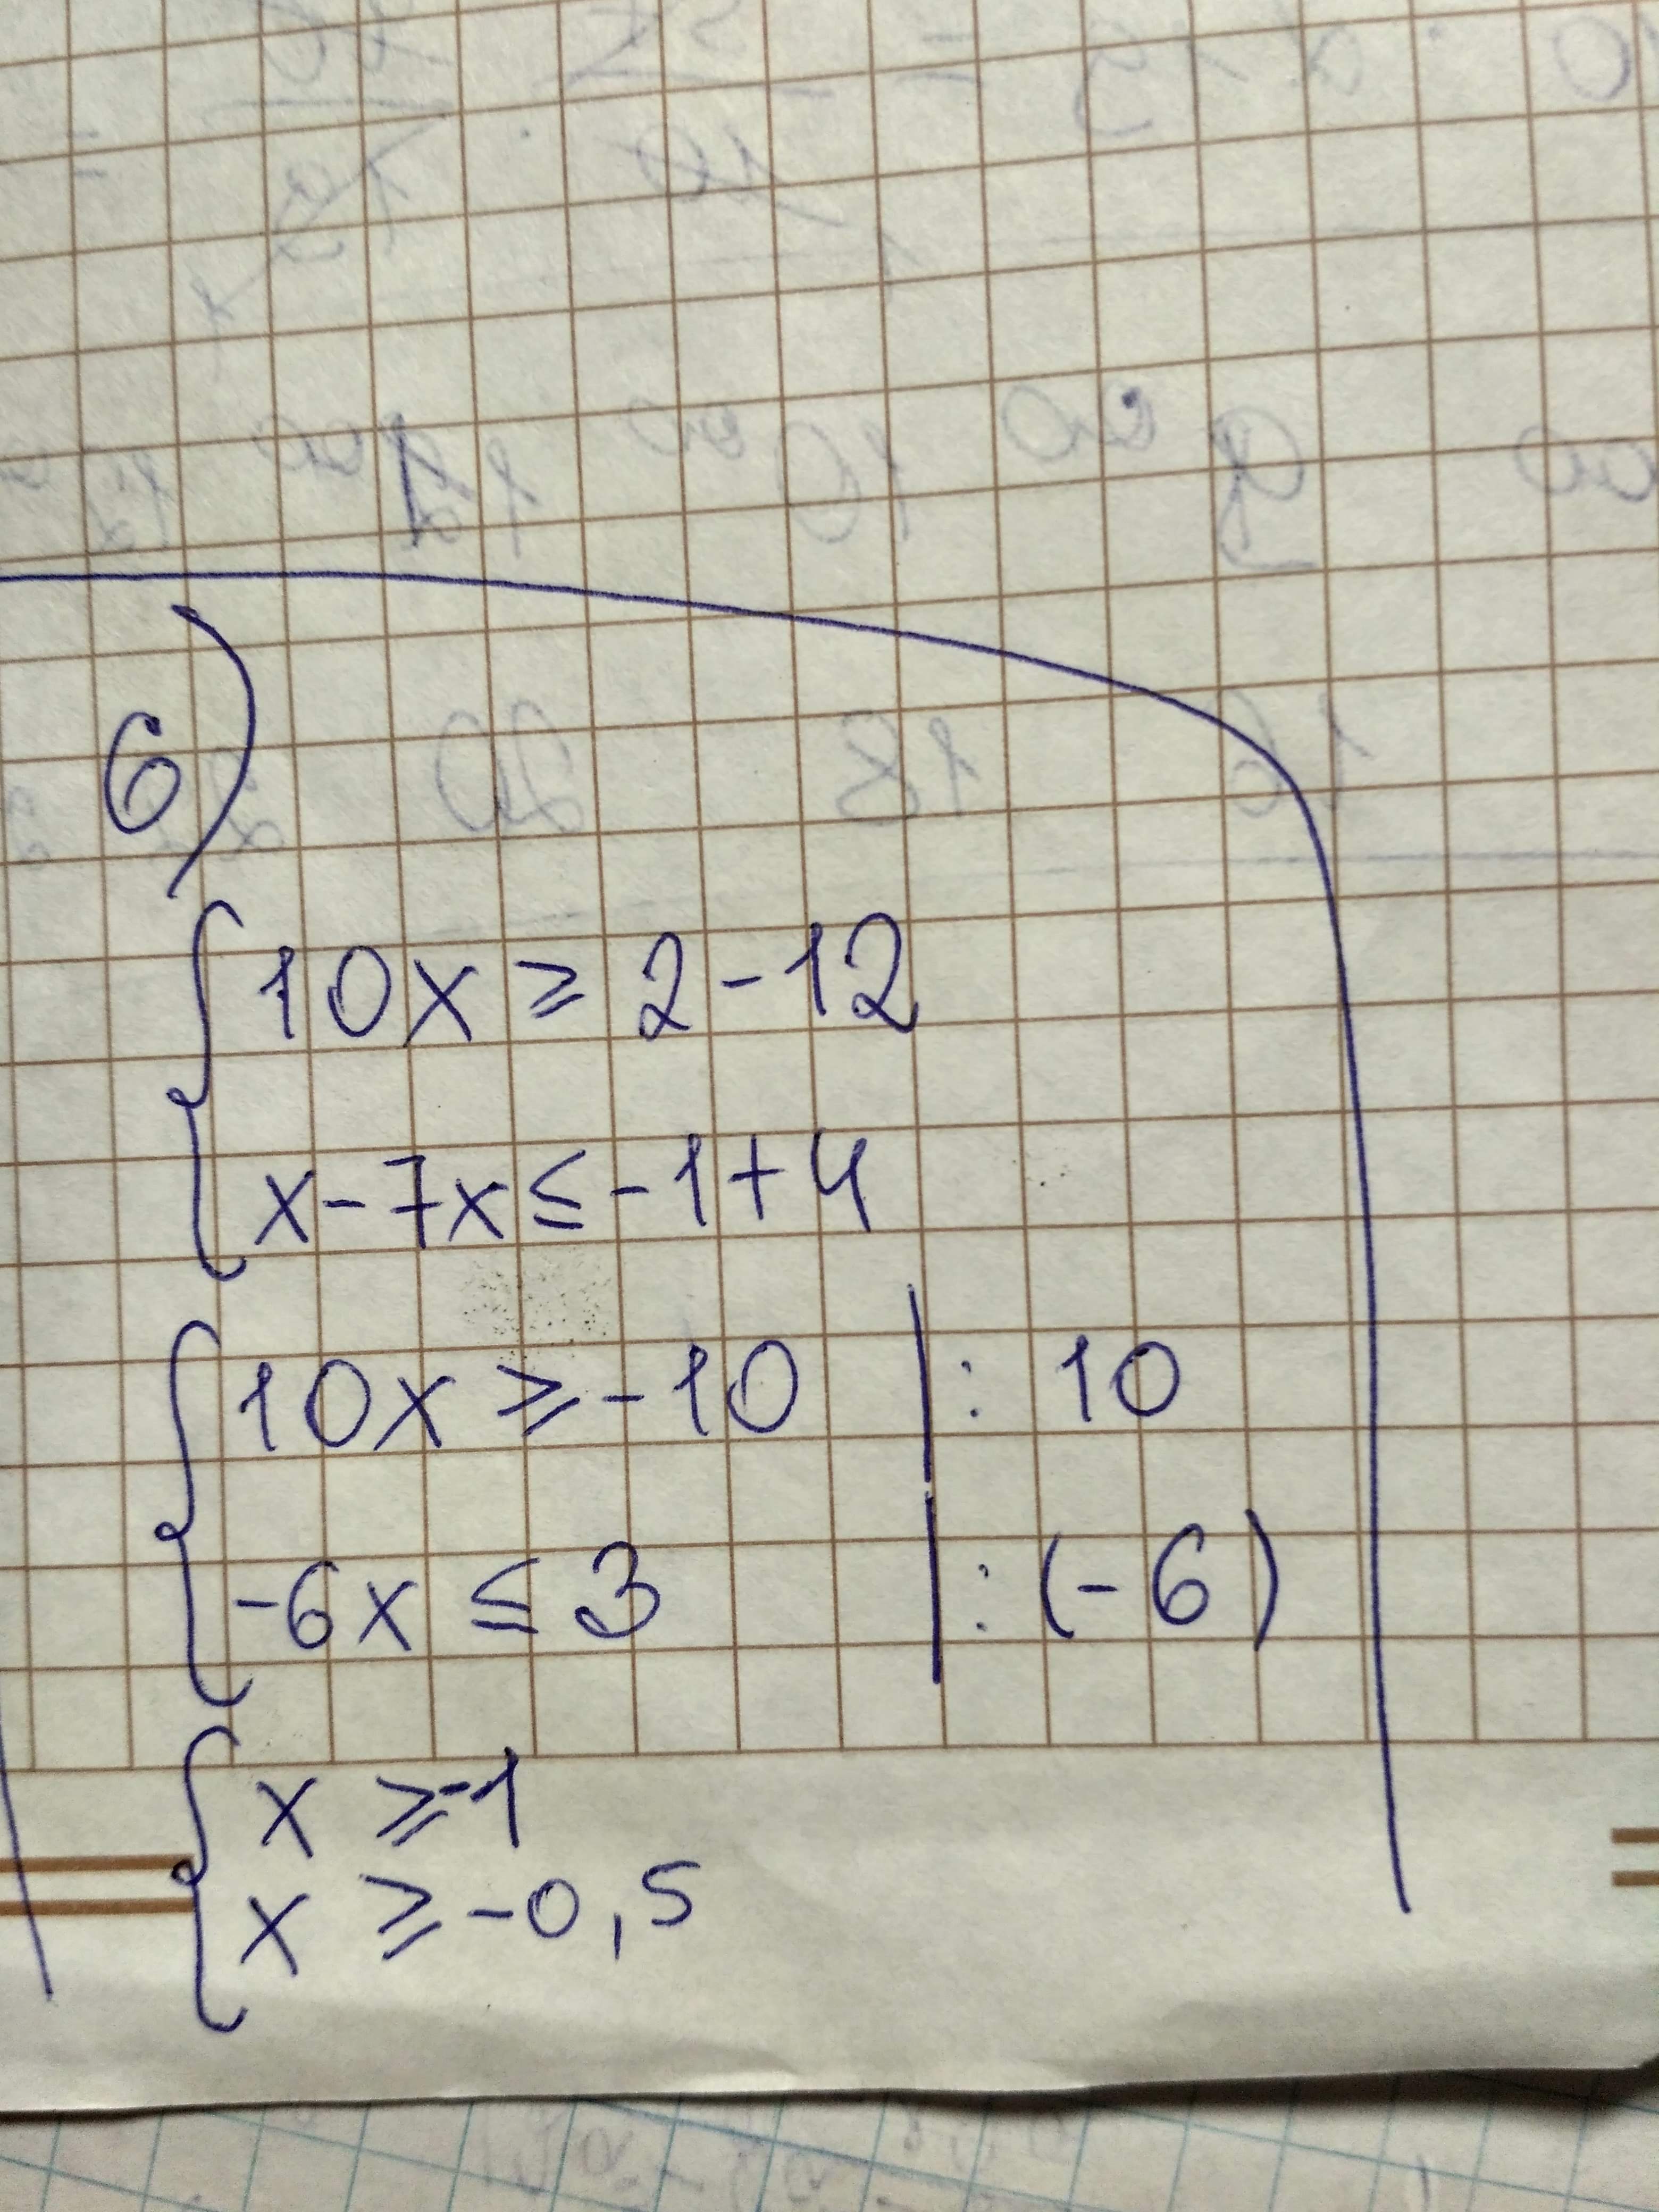 6)
10x ≥ 2 - 12
x - 7x ≤ -1 + 4
10x ≥ -10 | : 10
-6x ≤ 3 | : (-6)
x ≥ -1
x ≥ -0,5